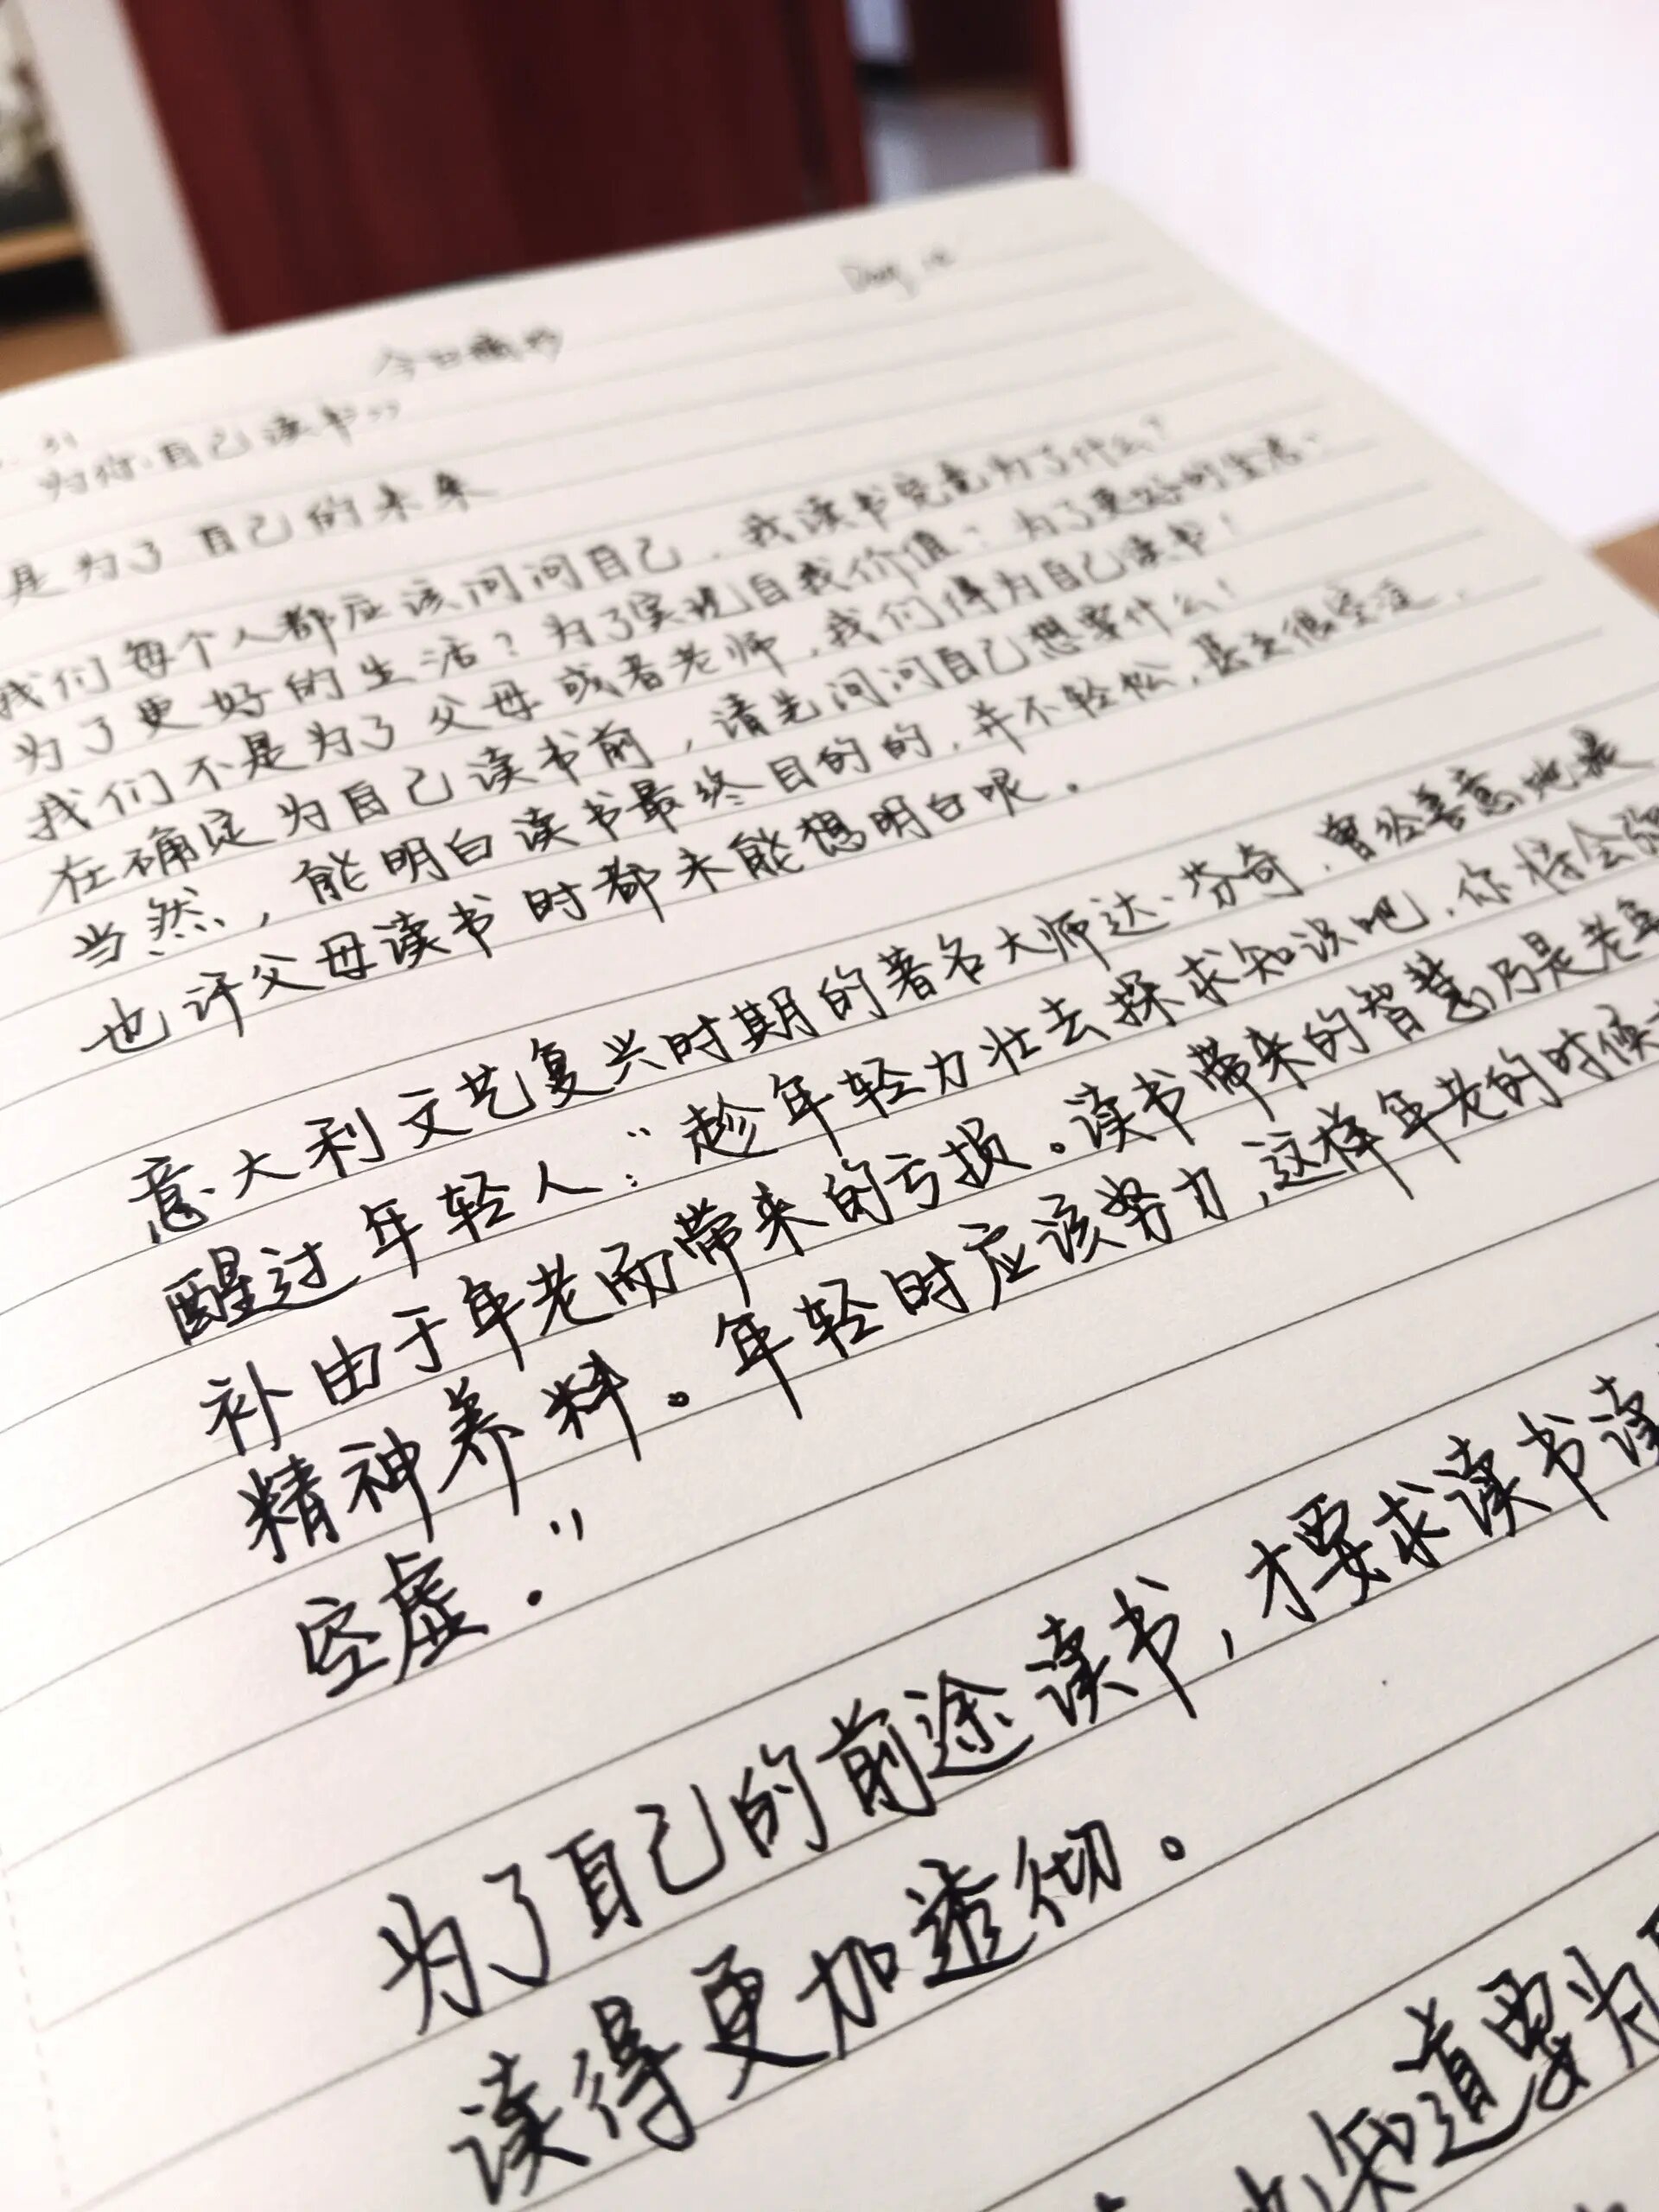 今日摘抄
为你自己读书”
是为了自己的未来
我们每个人都应该问问自己，我读书究竟为了什么？
为了更好的生活？为了实现自我价值？为了更好的生活？
我们不是为了父母或者老师，我们得为自己读书！
在确定为自己读书前，请先问问自己想要什么！
当然，能明白读书最终目的的，并不轻松，甚至很
也许父母读书时都未能想明白呢。
意大利文艺复兴时期的著名大师达·芬奇，曾经善意地提
醒过年轻人：“趁年轻力壮去探求知识吧，你将会
补由于年老而带来的亏损。读书带来的智慧乃是老年
精神养料。年轻时应该努力，这样年老的时候
空虚。”
为了自己的前途读书，才要求读书读
读得更加透彻。
知道要为